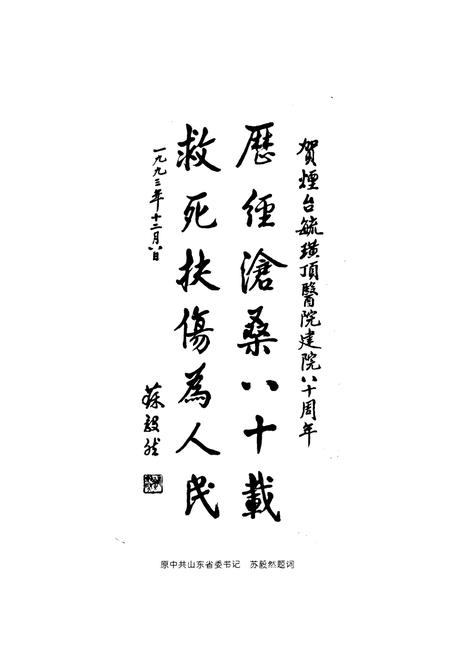 賀煙台毓璜頂醫院建院八十周年
歷經滄桑八十載
救死扶傷為人民
一九九三年十二月八日
蘇毅然
原中共山东省委书记　苏毅然题词